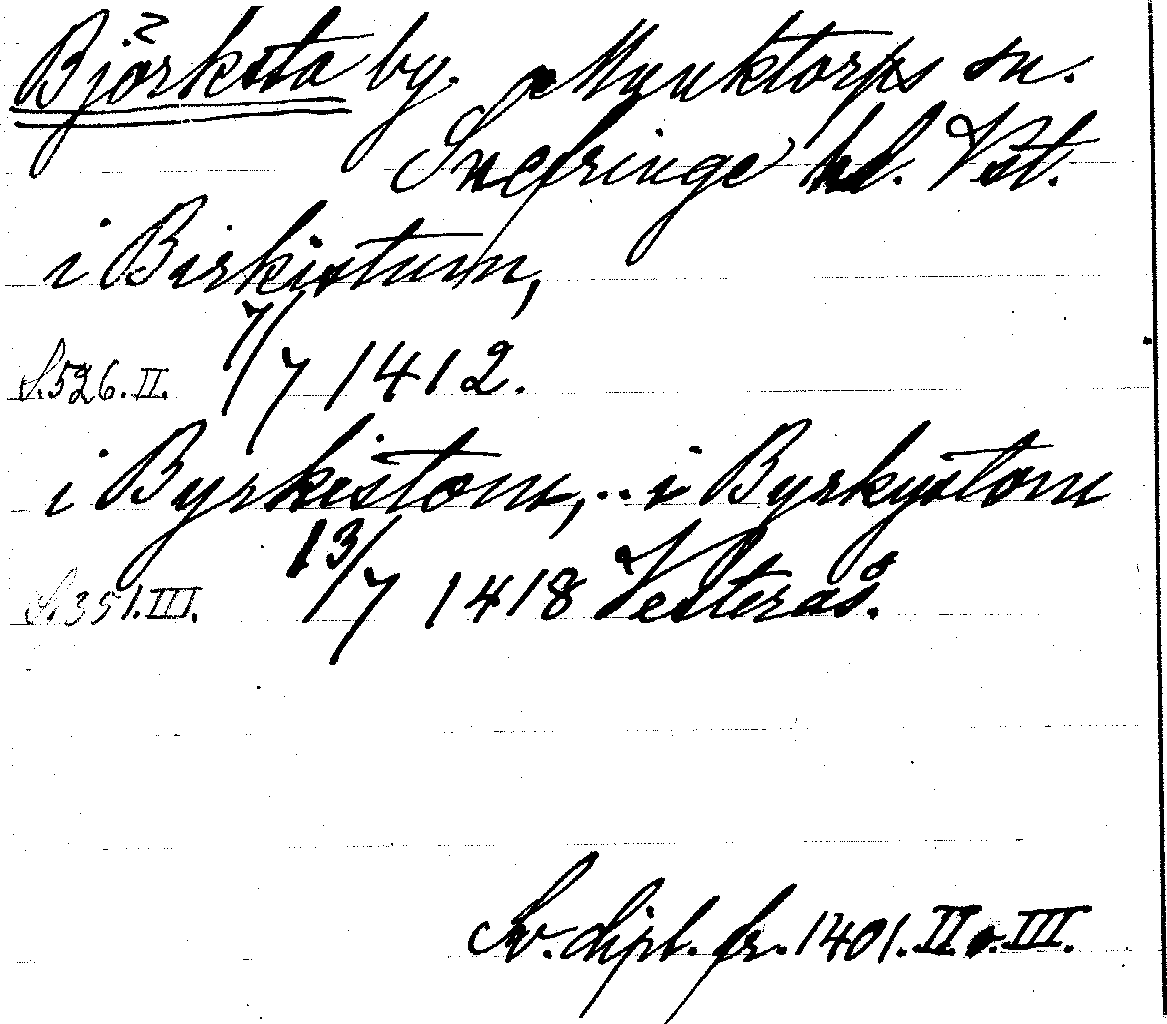 Björksta by. Munktorps sn.
Snefringe hd. Vstl.
i Birkistum,
S.526.II. 7/7 1412.
i Byrkistom, .. i Byrkystom
S.351.III. 13/7 1418 Vesterås.
Sv. dipl. fr. 1401. II o. III.